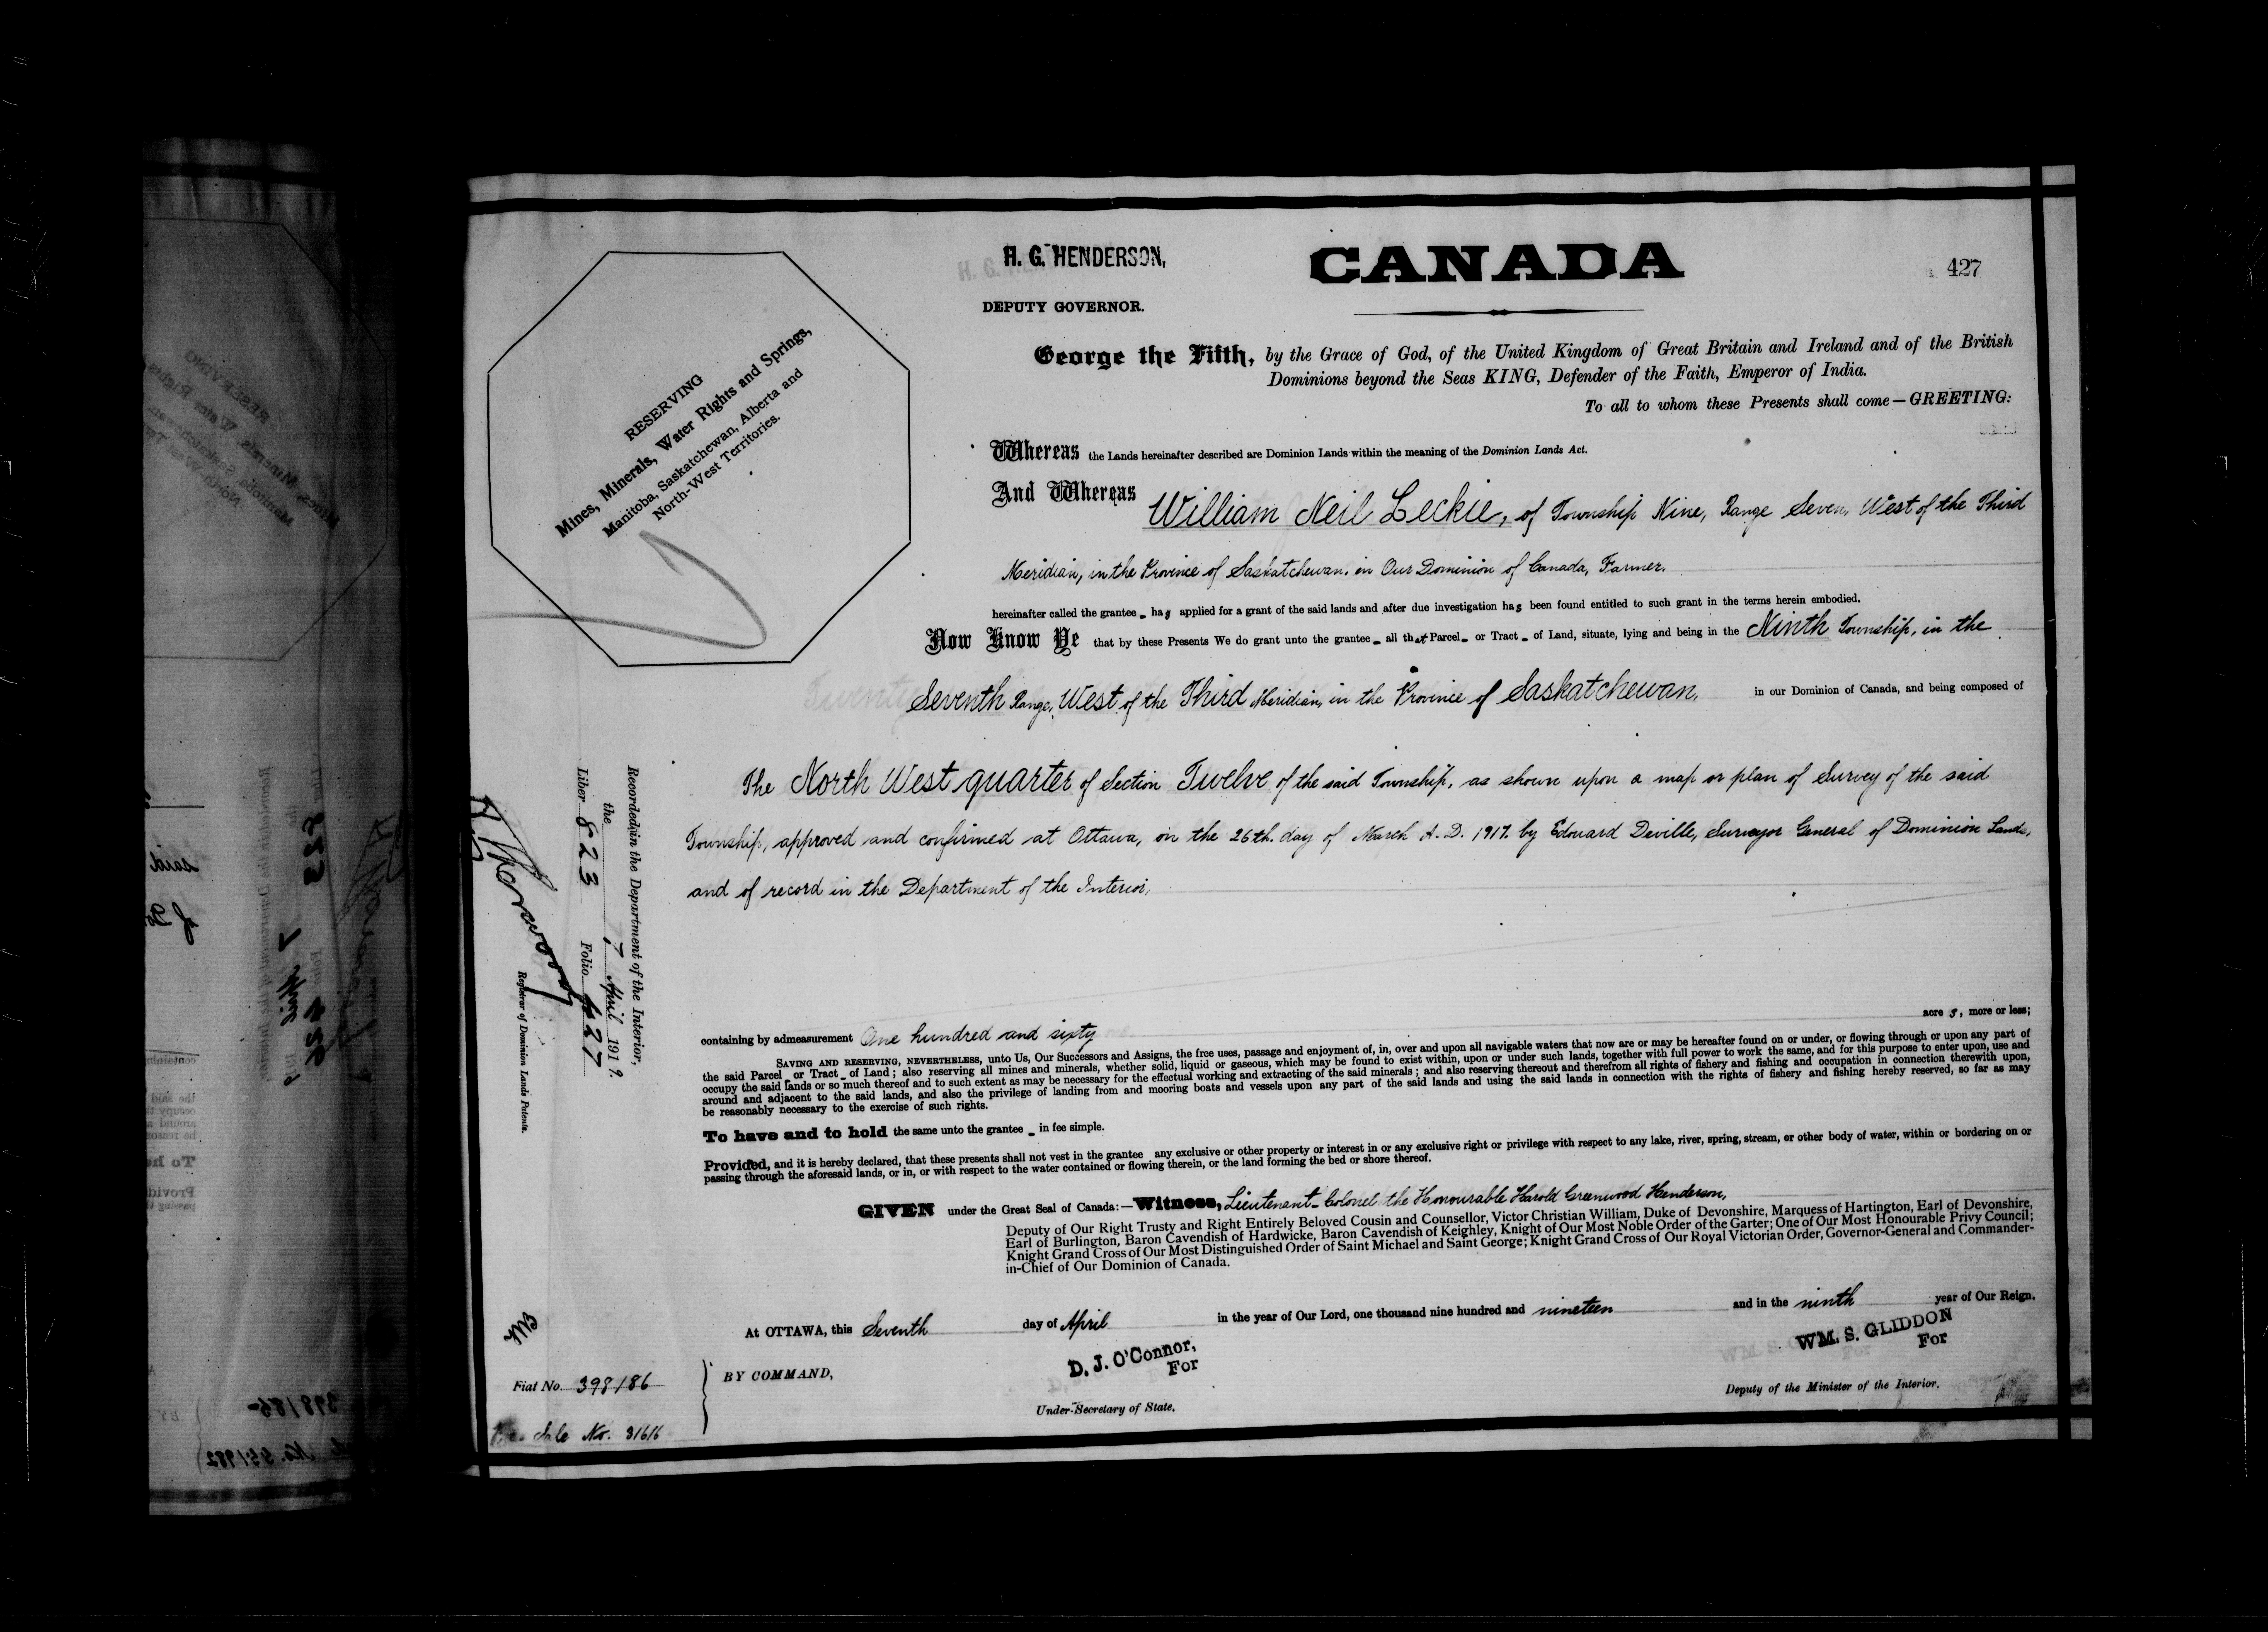 H. G. HENDERSON,
DEPUTY GOVERNOR.
CANADA
427
RESERVING
Mines, Minerals, Water Rights and Springs,
Manitoba, Saskatchewan, Alberta and
North-West Territories.
George the Fifth, by the Grace of God, of the United Kingdom of Great Britain and Ireland and of the British
Dominions beyond the Seas KING, Defender of the Faith, Emperor of India.
To all to whom these Presents shall come—GREETING:
Whereas the Lands hereinafter described are Dominion Lands within the meaning of the Dominion Lands Act.
And Whereas William Neil Leckie, of Township Nine, Range Seven, West of the Third
Meridian, in the Province of Saskatchewan, in Our Dominion of Canada, Farmer.
hereinafter called the grantee - has applied for a grant of the said lands and after due investigation has been found entitled to such grant in the terms herein embodied.
Now Know Ye that by these Presents We do grant unto the grantee - all that Parcel - or Tract - of Land, situate, lying and being in the Ninth Township, in the
Seventh Range, West of the Third Meridian, in the Province of Saskatchewan, in our Dominion of Canada, and being composed of
The North West quarter of Section Twelve of the said Township, as shown upon a map or plan of Survey of the said
Township, approved and confirmed at Ottawa, on the 26th. day of March A. D. 1917. by Edouard Deville, Surveyor General of Dominion Lands,
and of record in the Department of the Interior,
Recorded in the Department of the Interior,
the 7 April 1919.
Liber 823 Folio 427
Registrar of Dominion Lands Patents.
containing by admeasurement One hundred and sixty acre s, more or less;
SAVING AND RESERVING, NEVERTHELESS, unto Us, Our Successors and Assigns, the free uses, passage and enjoyment of, in, over and upon all navigable waters that now are or may be hereafter found on or under, or flowing through or upon any part of
the said Parcel or Tract - of Land; also reserving all mines and minerals, whether solid, liquid or gaseous, which may be found to exist within, upon or under such lands, together with full power to work the same, and for this purpose to enter upon, use and
occupy the said lands or so much thereof and to such extent as may be necessary for the effectual working and extracting of the said minerals; and also reserving thereout and therefrom all rights of fishery and fishing and occupation in connection therewith upon,
around and adjacent to the said lands, and also the privilege of landing from and mooring boats and vessels upon any part of the said lands and using the said lands in connection with the rights of fishery and fishing hereby reserved, so far as may
be reasonably necessary to the exercise of such rights.
To have and to hold the same unto the grantee - in fee simple.
Provided, and it is hereby declared, that these presents shall not vest in the grantee any exclusive or other property or interest in or any exclusive right or privilege with respect to any lake, river, spring, stream, or other body of water, within or bordering on or
passing through the aforesaid lands, or in, or with respect to the water contained or flowing therein, or the land forming the bed or shore thereof.
GIVEN under the Great Seal of Canada:—Witness, Lieutenant-Colonel the Honourable Harold Greenwood Henderson,
Deputy of Our Right Trusty and Right Entirely Beloved Cousin and Counsellor, Victor Christian William, Duke of Devonshire, Marquess of Hartington, Earl of Devonshire,
Earl of Burlington, Baron Cavendish of Hardwicke, Baron Cavendish of Keighley, Knight of Our Most Noble Order of the Garter; One of Our Most Honourable Privy Council;
Knight Grand Cross of Our Most Distinguished Order of Saint Michael and Saint George; Knight Grand Cross of Our Royal Victorian Order, Governor-General and Commander-
in-Chief of Our Dominion of Canada.
At OTTAWA, this Seventh day of April in the year of Our Lord, one thousand nine hundred and nineteen and in the ninth year of Our Reign.
BY COMMAND,
D. J. O'Connor,
For
Under-Secretary of State.
WM. S. GLIDDON
For
Deputy of the Minister of the Interior.
Fiat No. 398186
Sale No. 31616